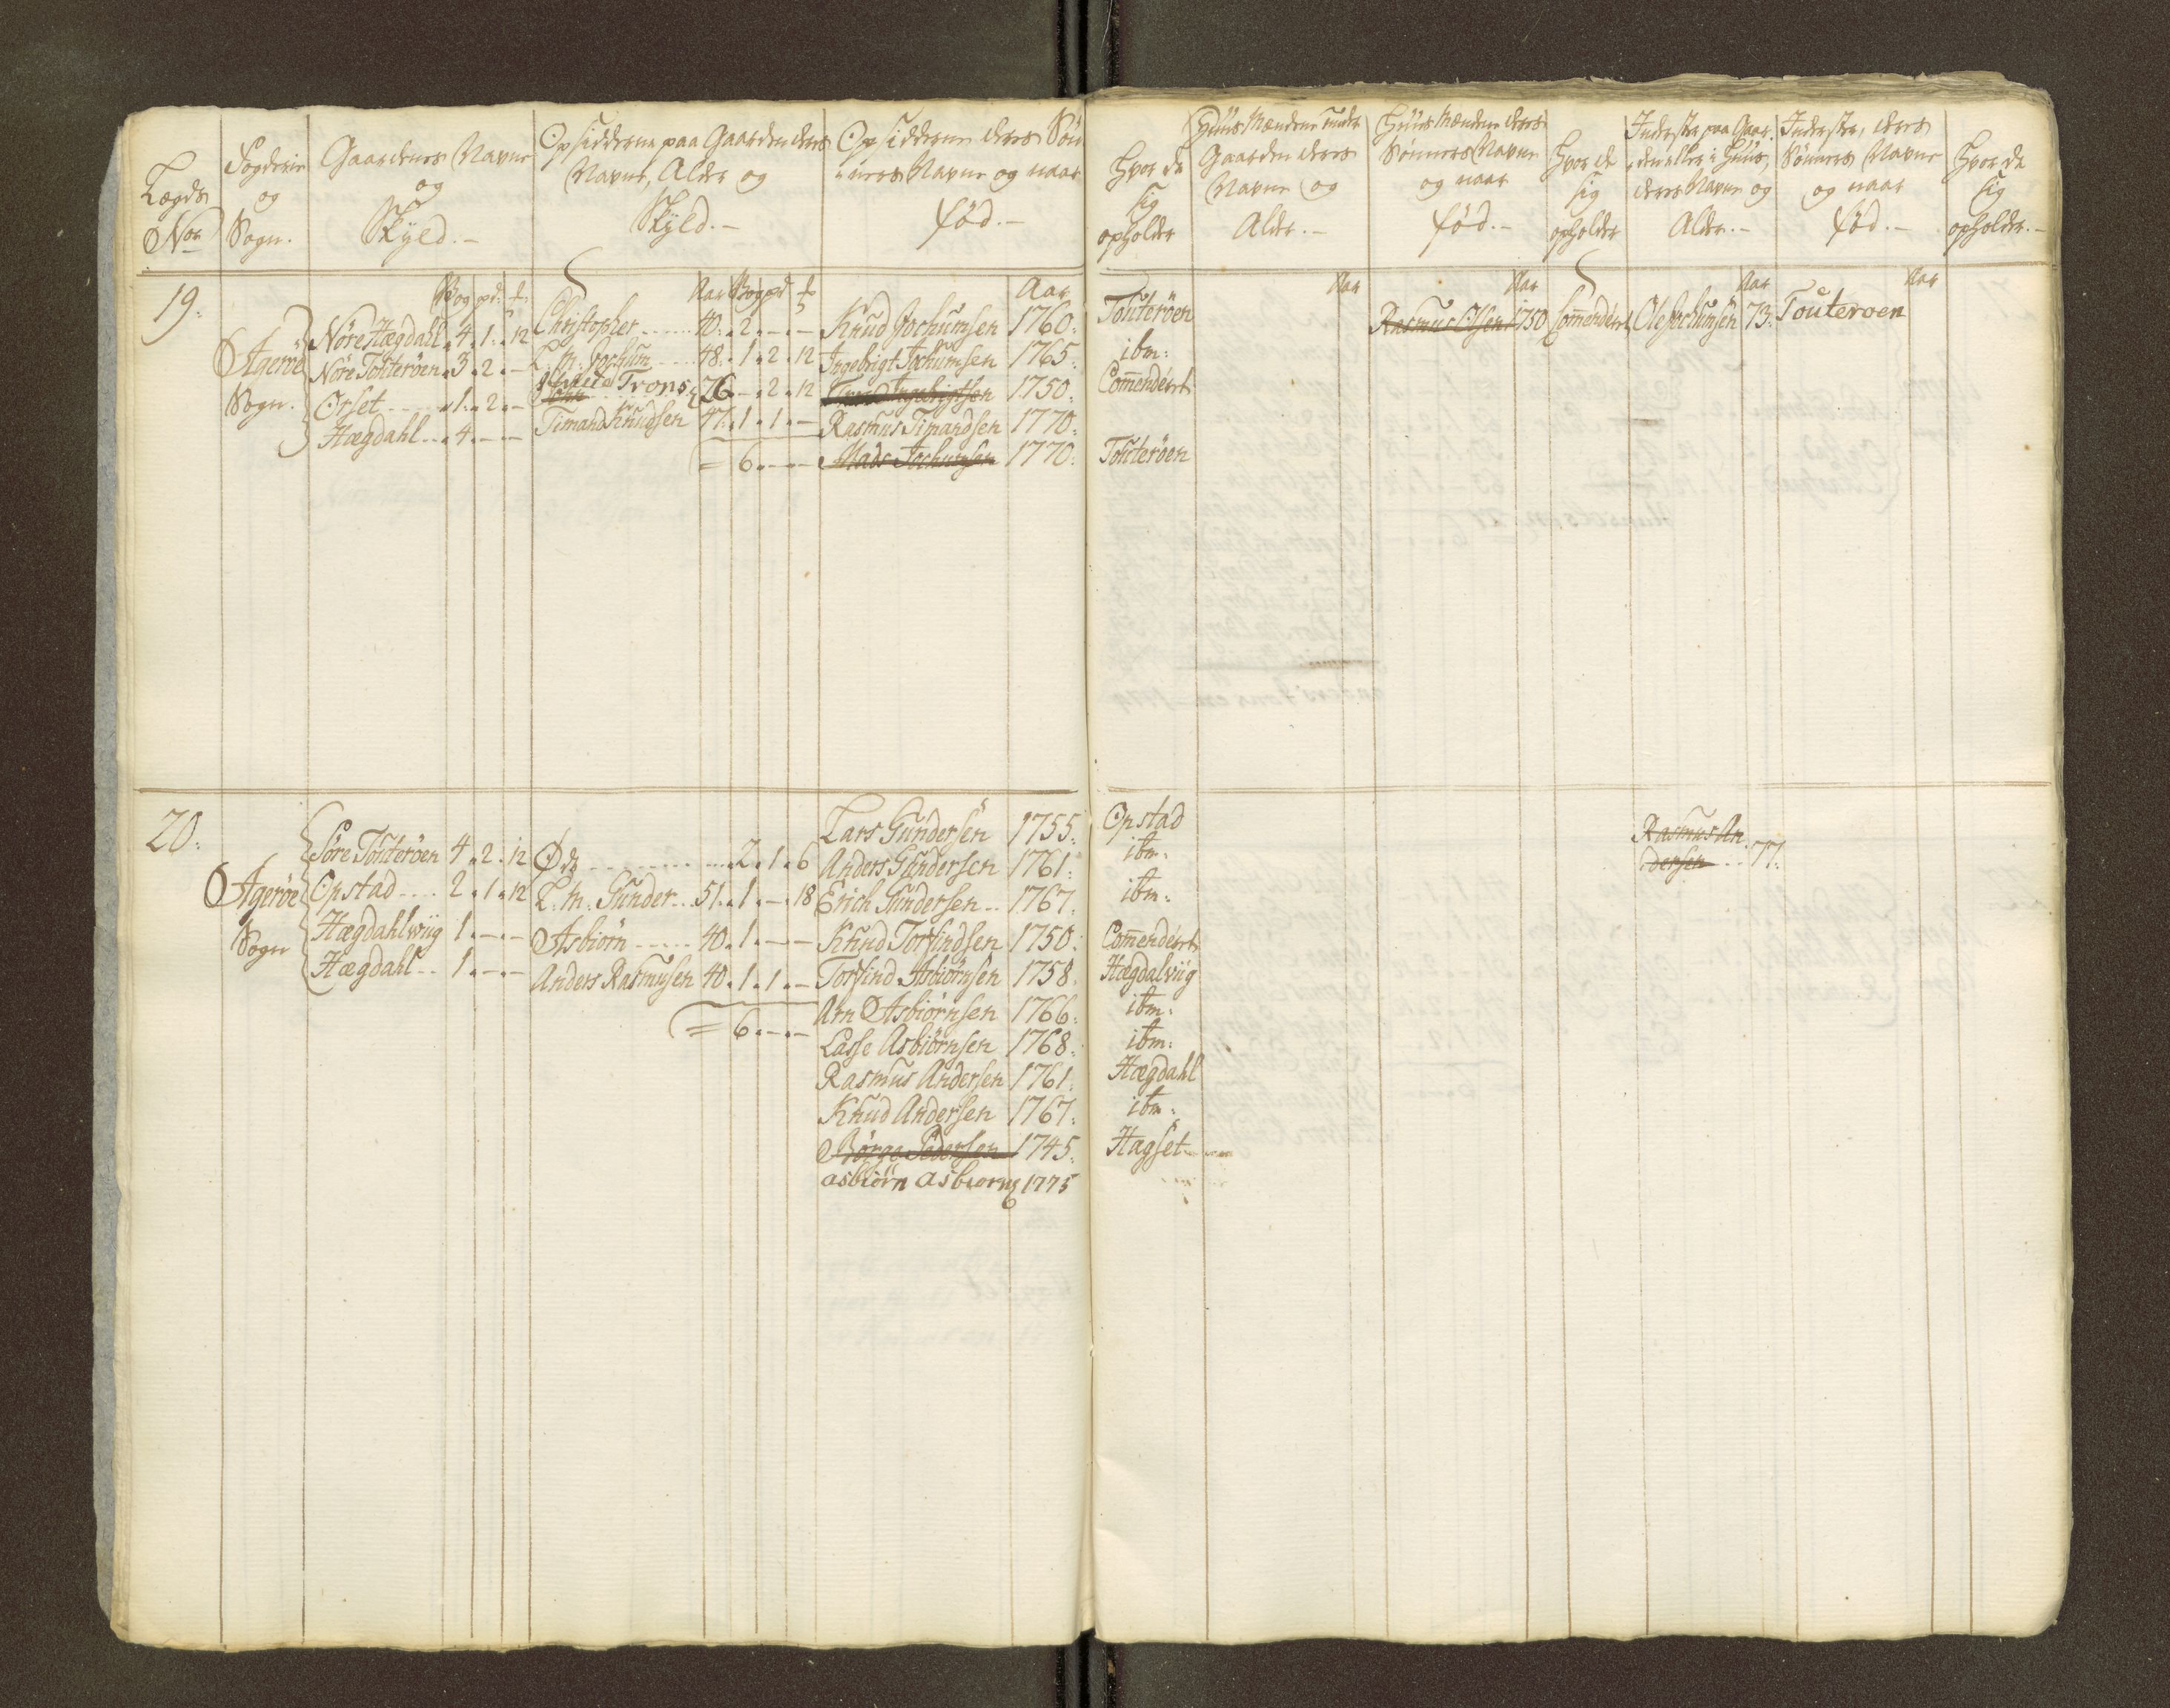 Lægds
No
Fogderie
og
Sogn.
Gaardenes Navne
og
Skyld.-
Opsidderne paa Gaarden deres
Navne, Alder og
Skyld.-
Opsidderne deres Søn-
ners Navne og naar
fød.-
hvor de
sig
opholder
Huus Mændene under
Gaarden deres
Navne og
Alder.-
Huus Mændene deres
Sønners Navne
og naar
fød.-
hvor de
sig
opholder
Inderster paa Gaar-
den eller i Huus,
deres Navne og
Alder.-
Inderster, deres
Sønners Navne
og naar
fød.-
hvor de
sig
opholder.-
19.
Agerøe
Sogn.
Wog pd.
Nøre Hægdahl 4. 1. 12
Nøre Touterøen 3. 2. -
Orset 1. 2. -
Hægdahl 4. - -
Aar Wog pd
Christopher 40. 2. - -
L. M. Jochum 48. 1. 2. 12
Trons 76 - 2. 12
Timand Knudsen 47. 1. 1. -
= 6. - -
Aar
Knud Jochumsen 1760.
Ingebrigt Jochumsen 1765.
Ingebrigtsen 1750.
Rasmus Timandsen 1770.
Mads Jochumsen 1770.
Touterøen
ibm:
Comenderet
Touterøen
Aar
Aar
Rasmus Olsen 1750
Comenderet
Aar
Ole Jochumsen 73.
Aar
Touteroen
20.
Agerøe
Sogn
Søre Touterøen 4. 2. 12
Opstad 2. 1. 12
Hægdahlwiig 1. - -
Hægdahl 1. - -
Øde 2. 1. 6
L. M. Gunder 51. 1. - 18
Asbiørn 40. 1. - -
Anders Rasmusen 40. 1. 1. -
= 6. - -
Lars Gundersen 1755.
Anders Gundersen 1761.
Erich Gundersen 1767.
Knud Torfindsen 1750.
Torfind Asbiørnsen 1758.
Arn Asbiørnsen 1766.
Lasse Asbiørnsen 1768.
Rasmus Andersen 1761.
Knud Andersen 1767.
Børge Pedersen 1745.
asbiørn asbiørns 1775
Opstad
ibm:
ibm:
Comenderet
Hægdalviig
ibm:
ibm:
Hægdahl
ibm:
Hagset
Rasmus An
dersen 77.